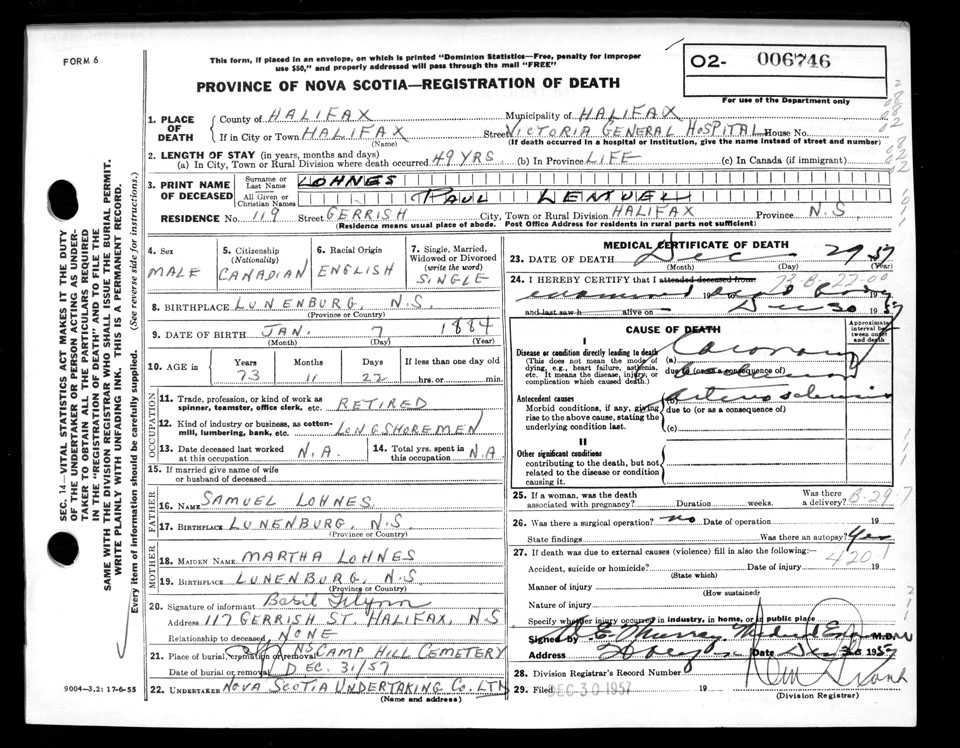 FORM 6
This form, if placed in an envelope, on which is printed "Dominion Statistics—Free, penalty for improper
use $50," and properly addressed will pass through the mail "FREE"
02- 006746
For use of the Department only
PROVINCE OF NOVA SCOTIA—REGISTRATION OF DEATH
1. PLACE OF DEATH
County of HALIFAX Municipality of HALIFAX
If in City or Town HALIFAX Street VICTORIA GENERAL HOSPITAL House No.
(Name) (If death occurred in a hospital or institution, give the name instead of street and number)
2. LENGTH OF STAY (in years, months and days)
(a) In City, Town or Rural Division where death occurred 49 YRS. (b) In Province LIFE (c) In Canada (if immigrant)
3. PRINT NAME OF DECEASED
Surname or Last Name LOHNES
All Given or Christian Names PAUL LEMUEL
RESIDENCE No. 119 Street GERRISH City, Town or Rural Division HALIFAX Province N.S.
(Residence means usual place of abode. Post Office Address for residents in rural parts not sufficient)
4. Sex
MALE
5. Citizenship
(Nationality)
CANADIAN
6. Racial Origin
ENGLISH
7. Single, Married,
Widowed or Divorced
(write the word)
SINGLE
8. BIRTHPLACE LUNENBURG, N.S.
(Province or Country)
9. DATE OF BIRTH JAN. 7 1884
(Month) (Day) (Year)
10. AGE in
Years Months Days If less than one day old
73 11 22 hrs. or min.
OCCUPATION
11. Trade, profession, or kind of work as
spinner, teamster, office clerk, etc. RETIRED
12. Kind of industry or business, as cotton-
mill, lumbering, bank, etc. LONGSHOREMEN
13. Date deceased last worked
at this occupation N.A.
14. Total yrs. spent in
this occupation N.A
15. If married give name of wife
or husband of deceased
FATHER
16. NAME SAMUEL LOHNES
17. BIRTHPLACE LUNENBURG, N.S.
(Province or Country)
MOTHER
18. MAIDEN NAME MARTHA LOHNES
19. BIRTHPLACE LUNENBURG, N.S
(Province or Country)
20. Signature of informant Basil Flynn
Address 117 GERRISH ST. HALIFAX, N.S
Relationship to deceased NONE
21. Place of burial, cremation or removal CAMP HILL CEMETERY
Date of burial or removal DEC. 31/57
22. UNDERTAKER NOVA SCOTIA UNDERTAKING CO. LTD
(Name and address)
MEDICAL CERTIFICATE OF DEATH
23. DATE OF DEATH Dec 29 57
(Month) (Day) (Year)
24. I HEREBY CERTIFY that I attended deceased from
examined 19
and last saw h alive on Dec 30 1957
CAUSE OF DEATH
Approximate
interval between onset
and death
I
Disease or condition directly leading to death
(This does not mean the mode of
dying, e.g., heart failure, asthenia,
etc. It means the disease, injury, or
complication which caused death.)
(a) Coronary
due to (or as a consequence of)
Antecedent causes
Morbid conditions, if any, giving
rise to the above cause, stating the
underlying condition last.
(b) arteriosclerosis
due to (or as a consequence of)
(c)
II
Other significant conditions
contributing to the death, but not
related to the disease or condition
causing it.
25. If a woman, was the death
associated with pregnancy? Duration weeks. Was there a delivery?
26. Was there a surgical operation? no Date of operation 19
State findings Was there an autopsy? Yes
27. If death was due to external causes (violence) fill in also the following:—
420.1
Accident, suicide or homicide? Date of injury 19
(State which)
Manner of injury
(How sustained)
Nature of injury
Specify whether injury occurred in industry, in home, or in public place
Signed by Murray Medical M.D.
Address Date Dec 30 1957
28. Division Registrar's Record Number
29. Filed DEC 30 1957 19
(Division Registrar)
9004-3.2: 17-6-55
SEC. 14—VITAL STATISTICS ACT MAKES IT THE DUTY
OF THE UNDERTAKER OR PERSON ACTING AS UNDER-
TAKER TO OBTAIN ALL THE PARTICULARS REQUIRED
IN THE "REGISTRATION OF DEATH" AND TO FILE THE
SAME WITH THE DIVISION REGISTRAR WHO SHALL ISSUE THE BURIAL PERMIT.
WRITE PLAINLY WITH UNFADING INK. THIS IS A PERMANENT RECORD.
Every item of information should be carefully supplied. (See reverse side for instructions.)